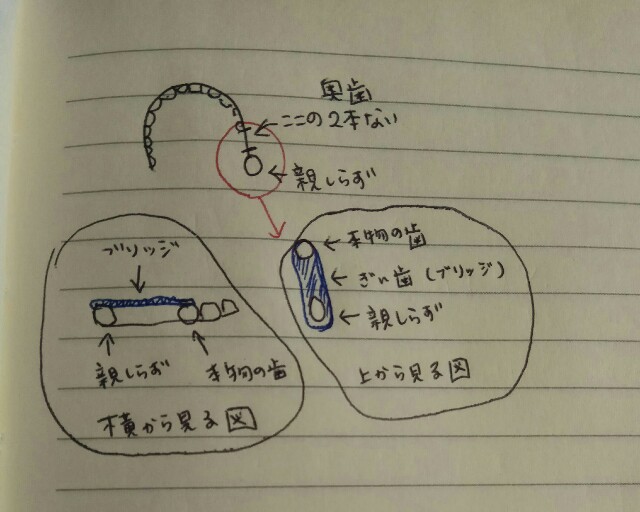 奥歯
ここの2本ない
親しらず
ブリッジ
親しらず
本物の歯
横から見る図
本物の歯
ぎい歯(ブリッジ)
親しらず
上から見る図